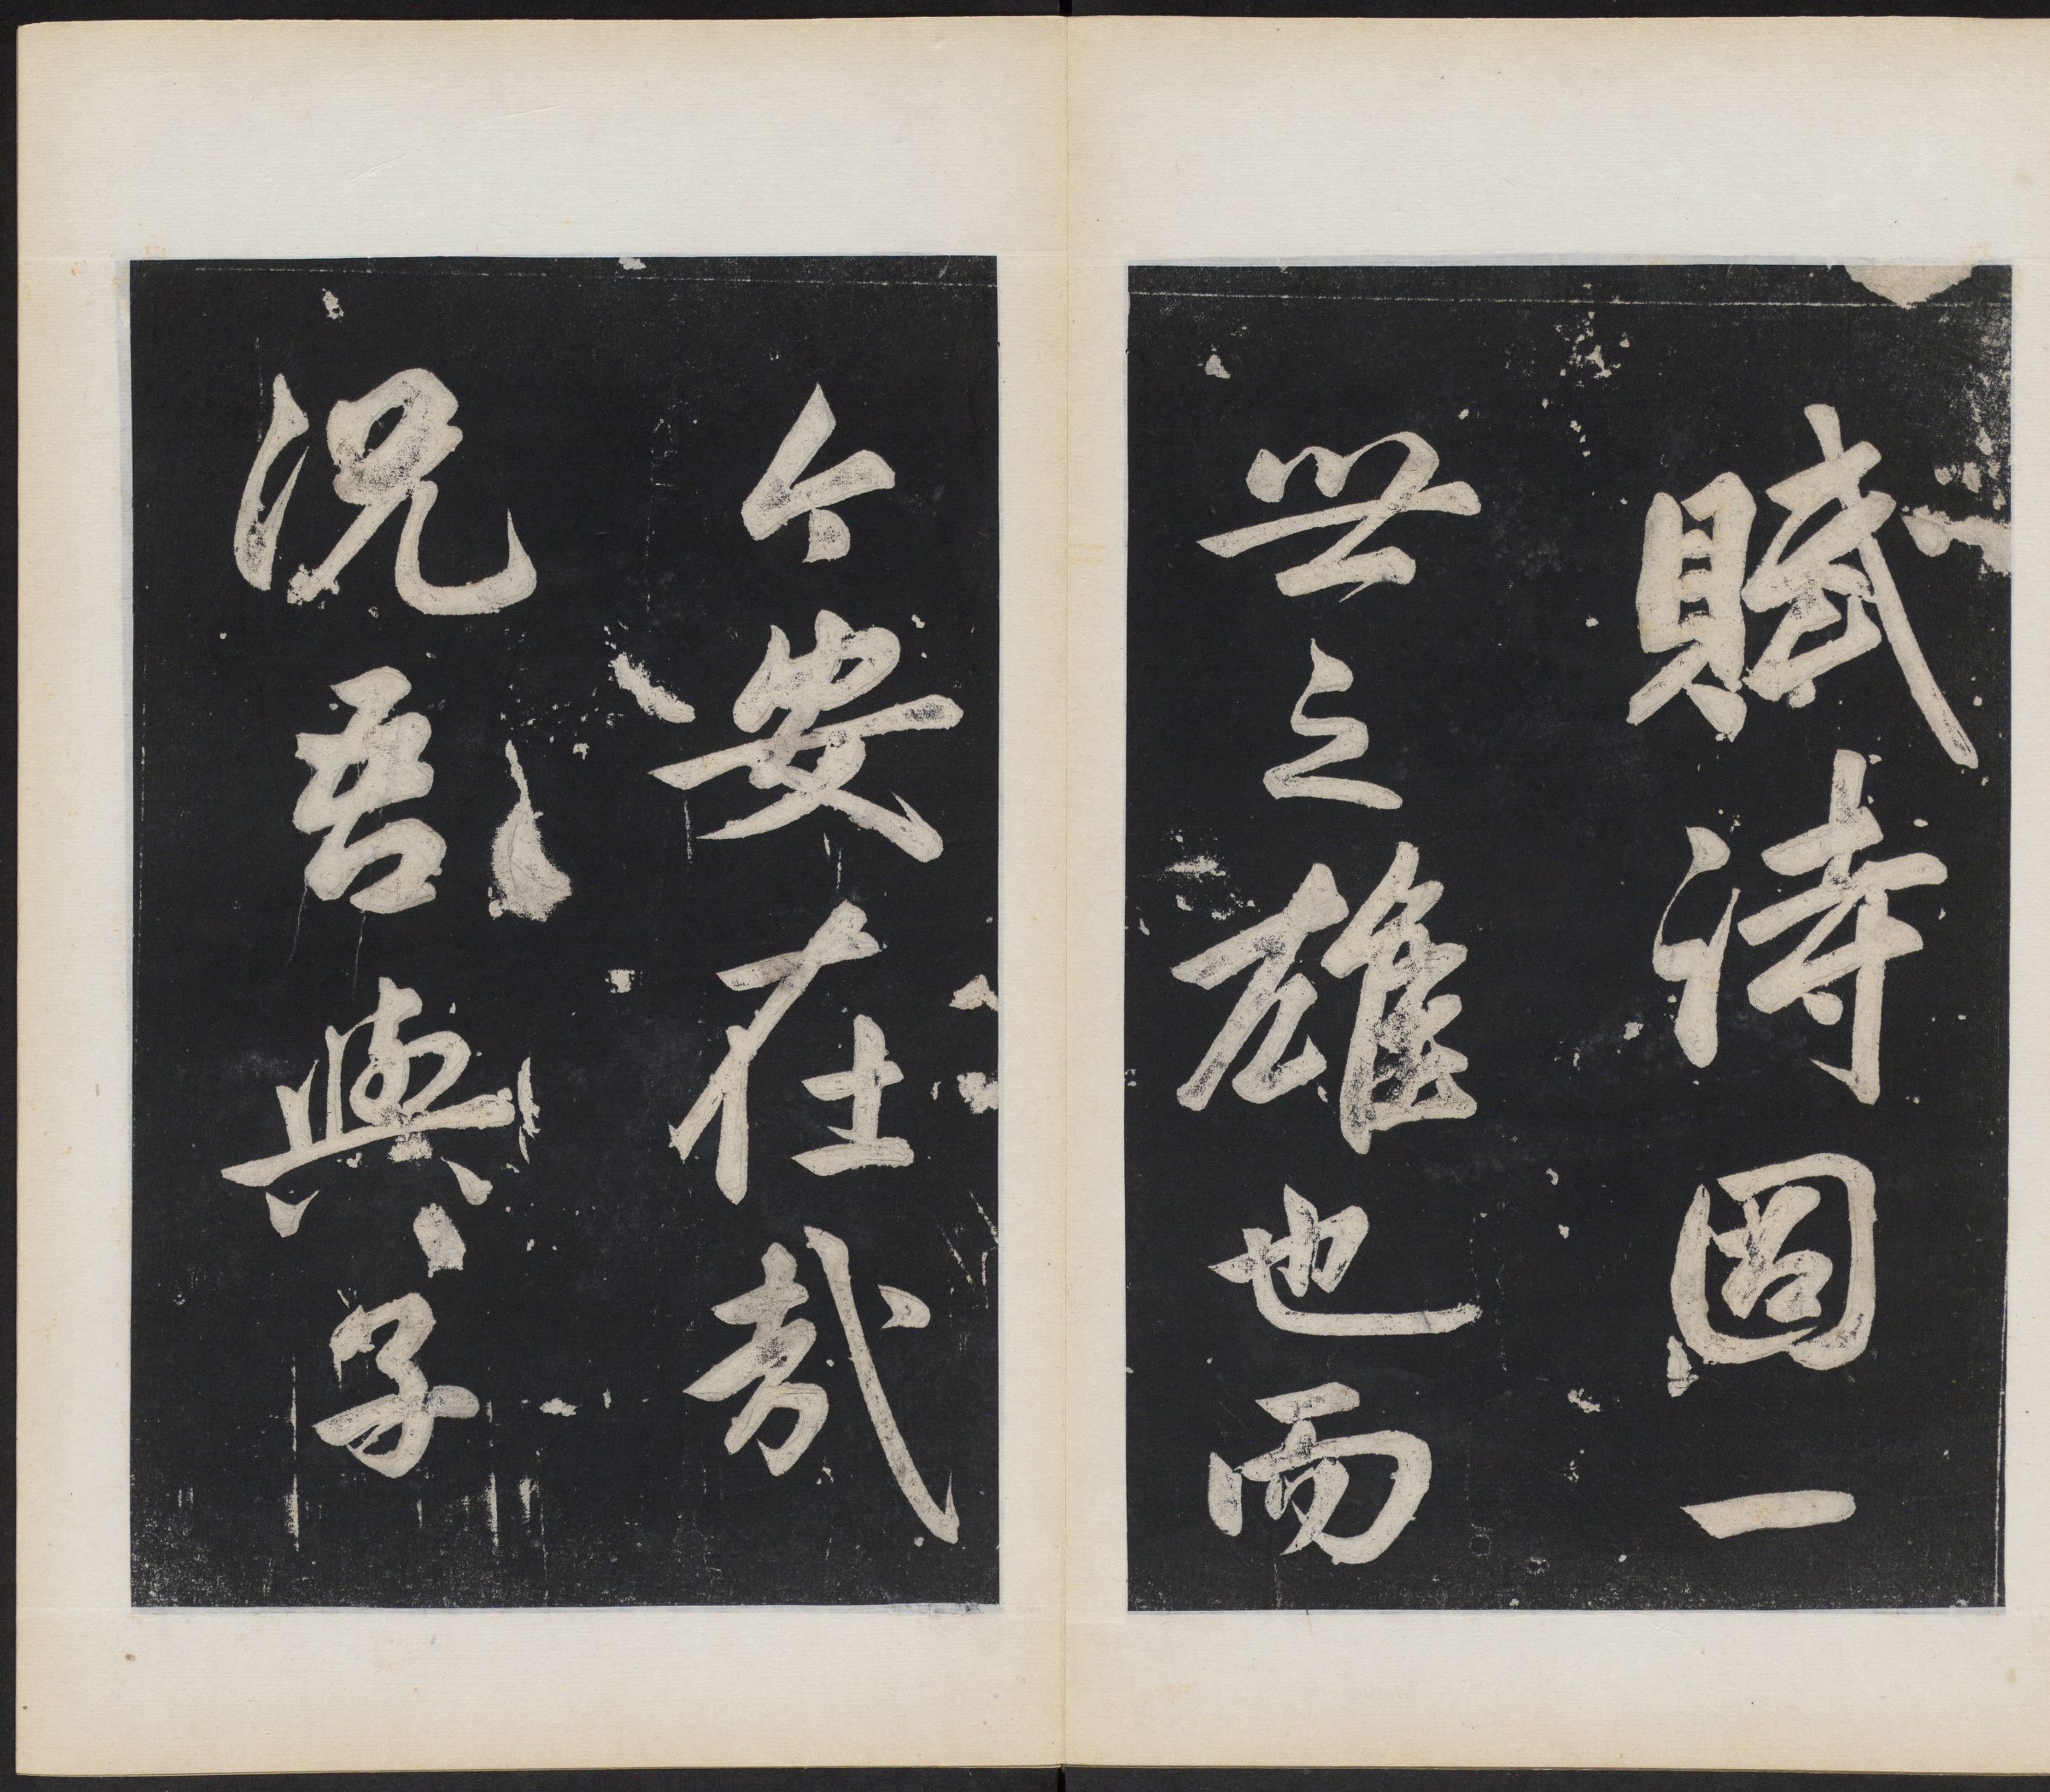 賦詩固一
世之雄也而
今安在哉
況吾與子